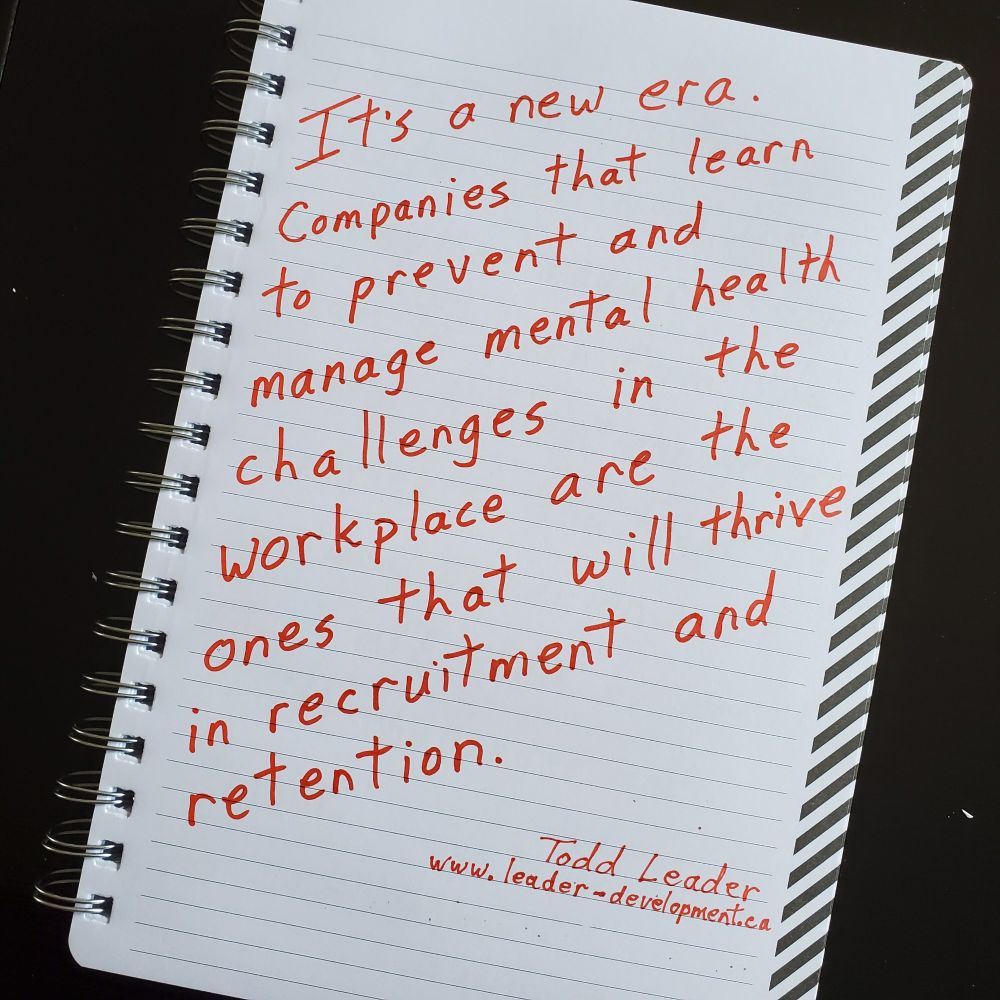 It's a new era.
Companies that learn
to prevent and
manage mental health
challenges in the
workplace are the
ones that will thrive
in recruitment and
retention.
Todd Leader
www.leader-development.ca